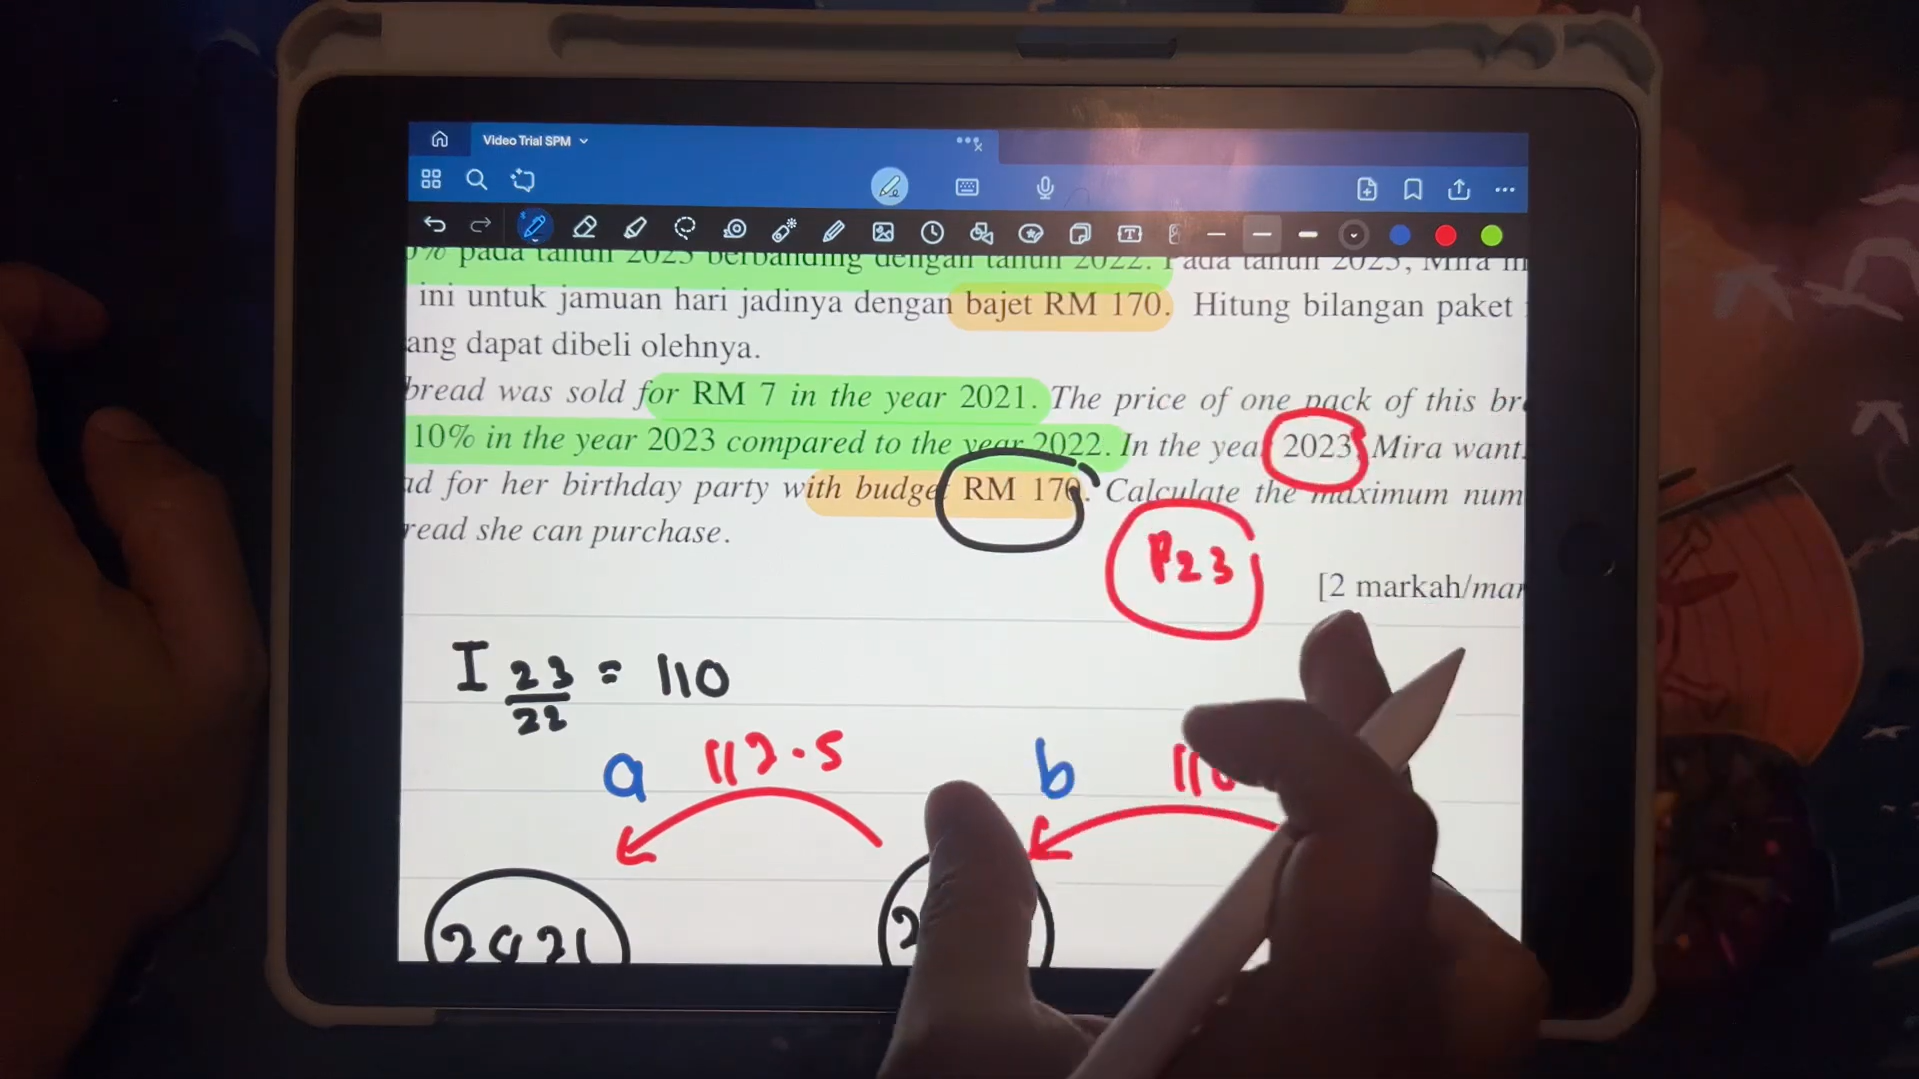 Video Trial SPM
0% pada tahun 2023 berbanding dengan tahun 2022. Pada tahun 2023, Mira
ini untuk jamuan hari jadinya dengan bajet RM 170. Hitung bilangan paket
ang dapat dibeli olehnya.
bread was sold for RM 7 in the year 2021. The price of one pack of this
10% in the year 2023 compared to the year 2022. In the year 2023, Mira want
ad for her birthday party with budget RM 170. Calculate the maximum num
read she can purchase.
P23
[2 markah/mar
I 23/22 = 110
a 112.5 b 110
2021 2